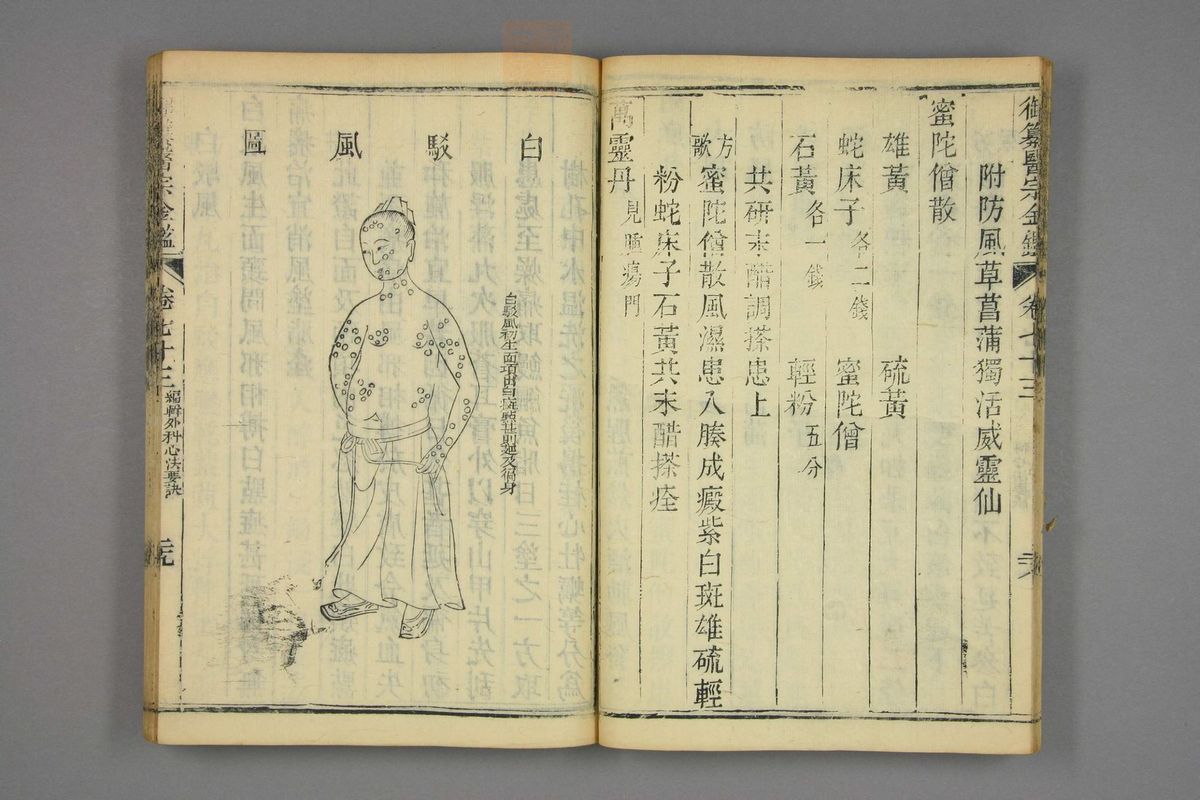 御纂醫宗金鑑 卷七十三
附防風草菖蒲獨活威靈仙
蜜陀僧散
雄黃 硫黃
蛇床子各二錢 蜜陀僧
石黃各一錢 輕粉五分
共研末醋調搽患上
方歌 蜜陀僧散風濕患入腠成癜紫白斑雄硫輕
粉蛇床子石黃共末醋搽痊
萬靈丹見腫瘍門
白駁風圖
白駁風初生面項
醫宗金鑑 卷七十三 編輯外科心法要訣